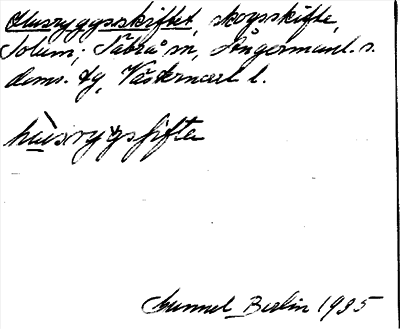 Husryggsskiftet, skogsskifte,
Solum, Säbrå sn, Ångermanl. s.
doms. fg, Västernorrl. l.
husrygsjifte
Gunnel Berlin 1935